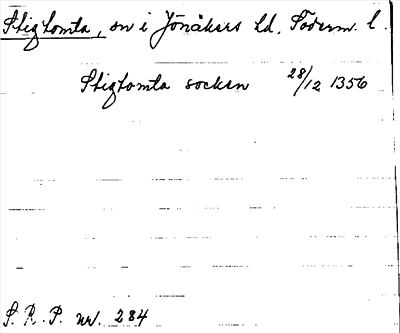 Stigtomta, sn i Jönåkers hd, Söderm. l.
Stigtomta socken 28/12 1356
S. R. P. nr. 284